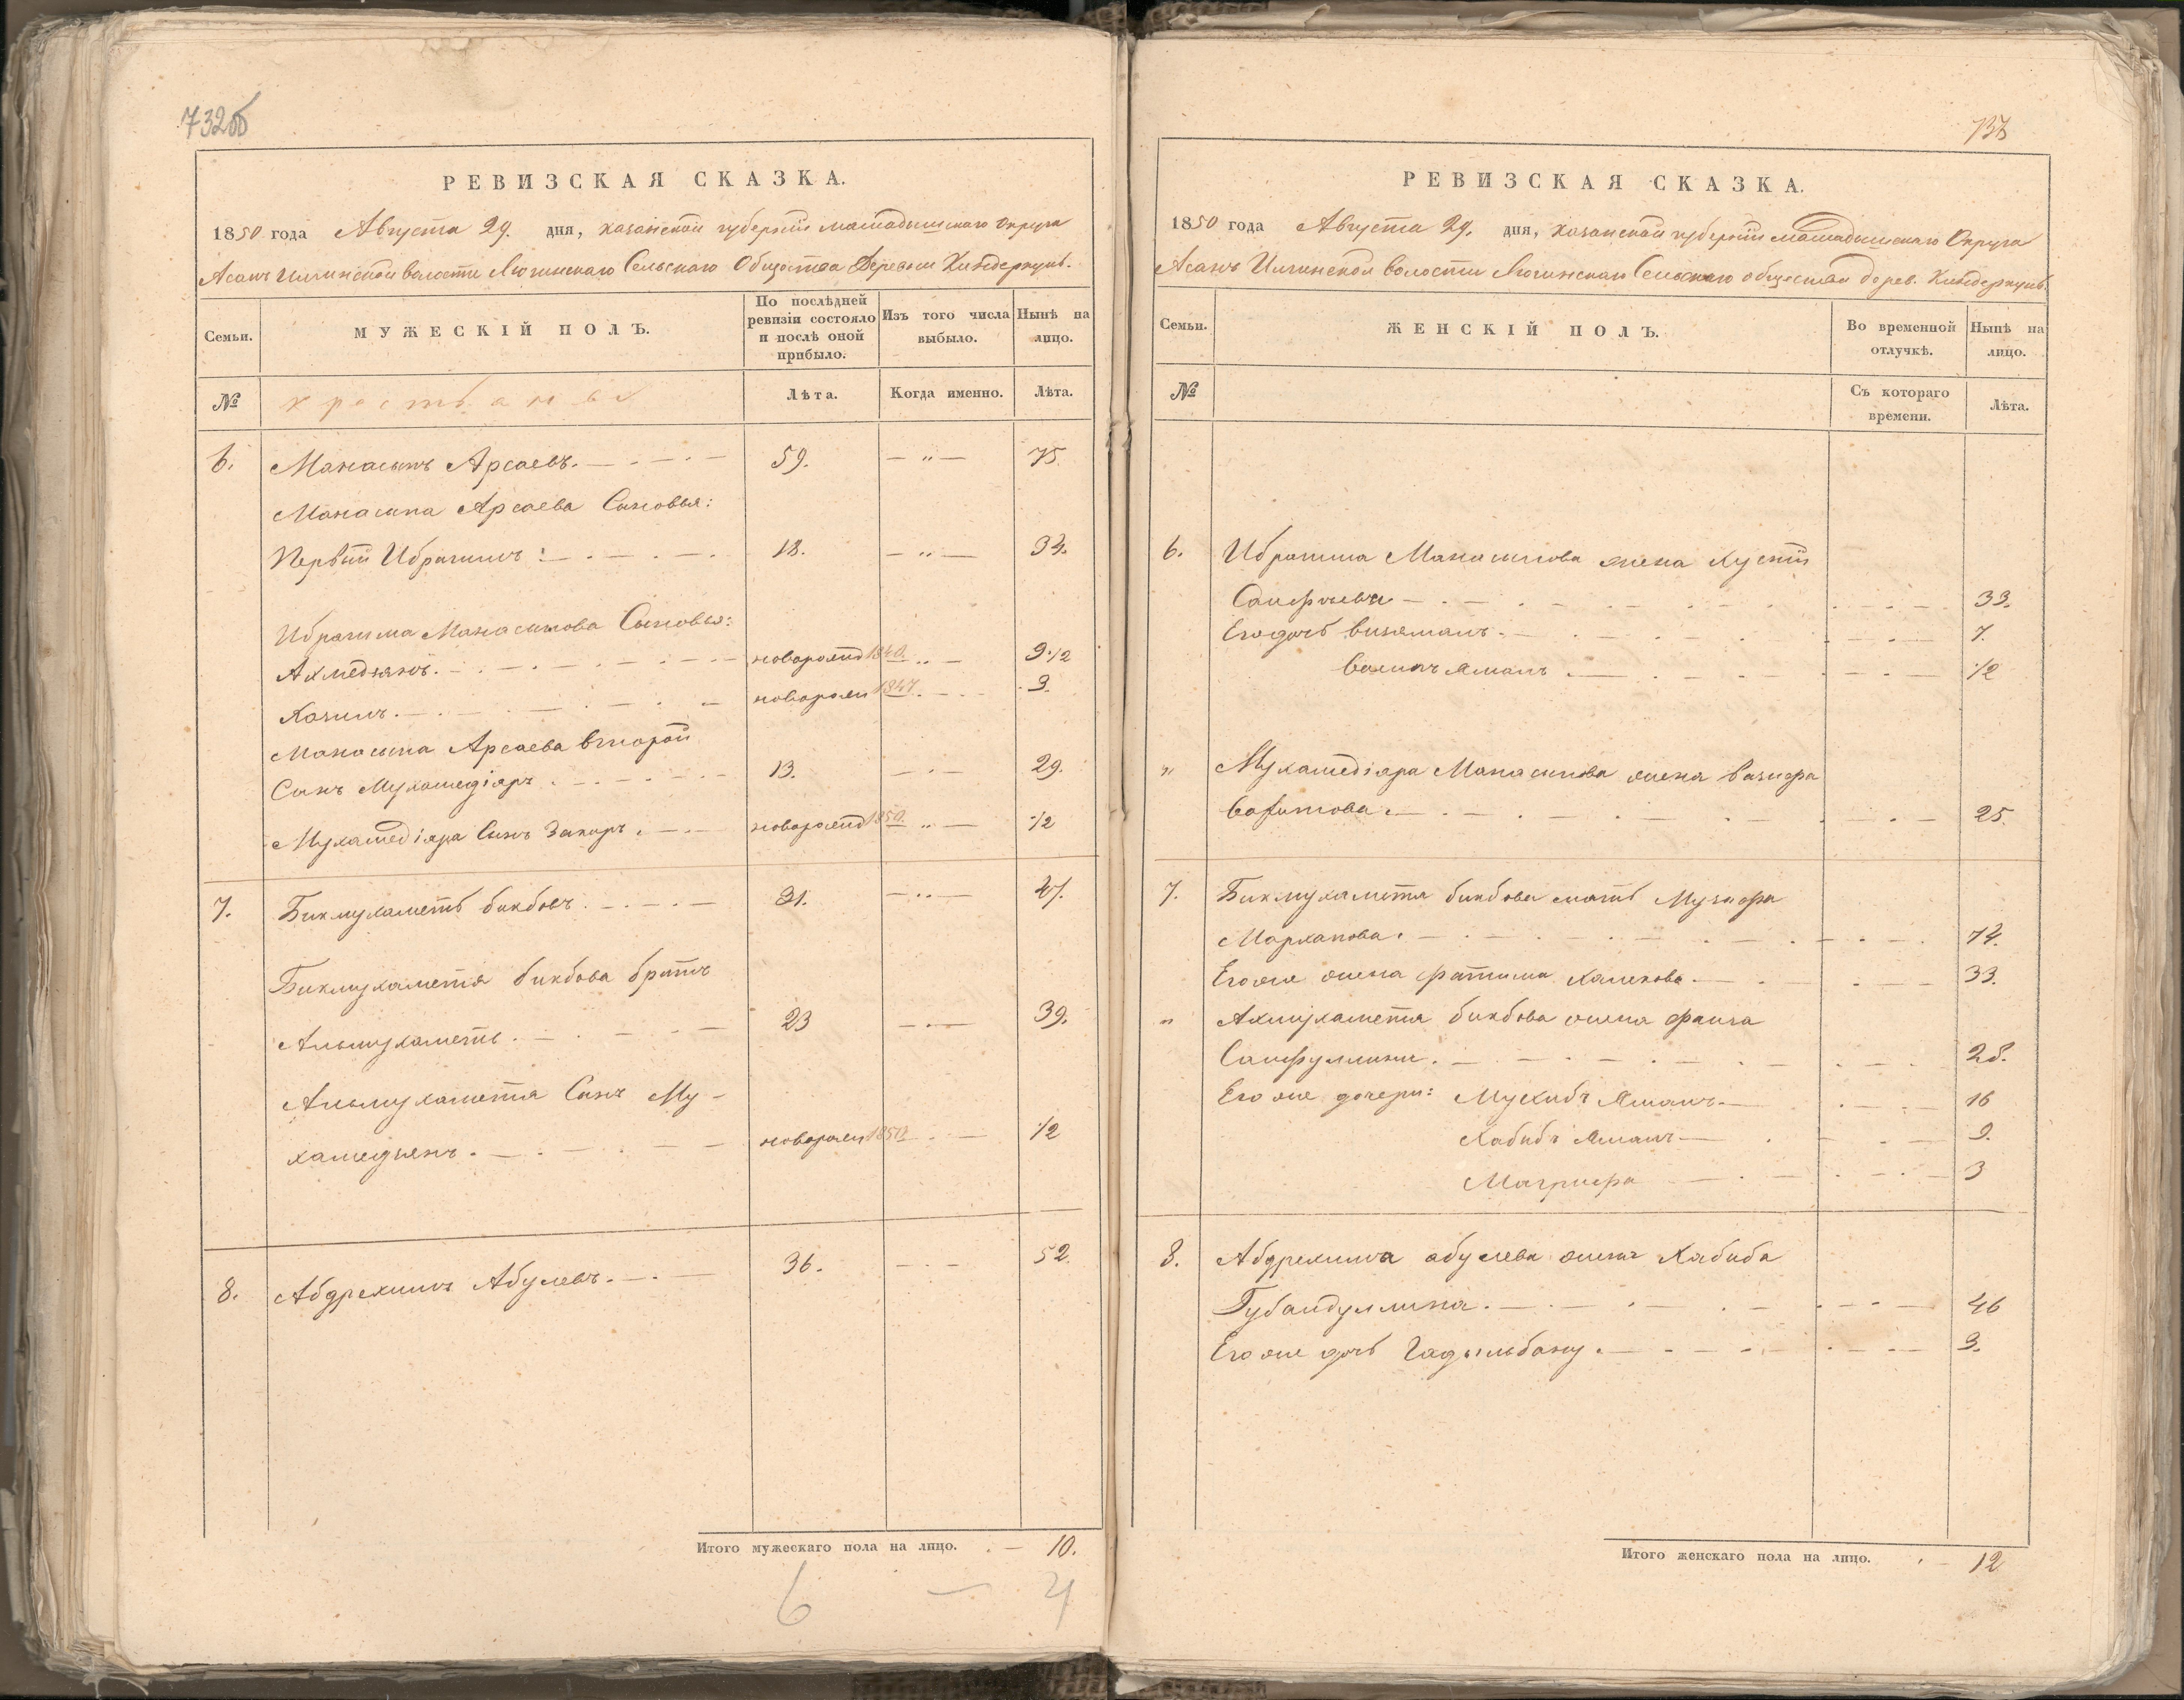 732об
РЕВИЗСКАЯ СКАЗКА.
1850 года Августа 29. дня, Казанской губернiи Мамадышскаго Округа
Асанъ Илгинской волости Лючинскаго Сельскаго Общества Деревни Киндеркуль.
Семьи.
МУЖЕСКІЙ ПОЛЪ.
По послѣдней
ревизіи состояло
и послѣ оной
прибыло.
Изъ того числа
выбыло.
Нынѣ на
лицо.
№
крестьяне
Лѣта.
Когда именно.
Лѣта.
6. Манасыпъ Арсаевъ. 59. — " — 75.
Манасыпа Арсаева Сыновья:
Первый Ибрагимъ: 18. — " — 34.
Ибрагима Манасыпова Сыновья:
Ахмедзянъ. новорожд 1840. " — 9 1/2
Казимъ. новорож 1847. 3.
Манасыпа Арсаева второй
Сынъ Мухамедіяръ. 13. — 29.
Мухамедіяра Сынъ Закиръ. новорожд 1850. " — 1/2
7. Бикмухаметь бикбовъ. 31. — " — 47.
Бикмухаметя бикбова братъ
Альмухаметь. 23 — 39.
Альмухаметя Сынъ Му-
хамедьянъ. новорож 1850 — 1/2
8. Абдрехимъ Абулевъ. 36. — 52.
Итого мужескаго пола на лицо. — 10.
6 — 4
733
РЕВИЗСКАЯ СКАЗКА.
1850 года Августа 29. дня, Казанской губернiи Мамадышскаго Округа
Асанъ Илгинской волости Лючинскаго Сельскаго общества дерев. Киндеркуль.
Семьи.
ЖЕНСКІЙ ПОЛЪ.
Во временной
отлучкѣ.
Нынѣ на
лицо.
№
Съ котораго
времени.
Лѣта.
6. Ибрагима Манасыпова жена
33.
Его дочь 7.
1/2
" Мухамедіяра Манасыпова жена Вазифа
25.
7. Бикмухаметя бикбова мать
74.
Его же жена фатима 33.
" Ахмухаметя бикбова жена
Сайфуллина. 28.
Его же дочери: Мухибъ Яманъ 16
Хабибъ Яманъ 9.
Магрифа 3
8. Абдрехима абулева жена Хабиба
Губайдуллина. 46
Его же дочь Гадыльбану. 3.
Итого женскаго пола на лицо. — 12